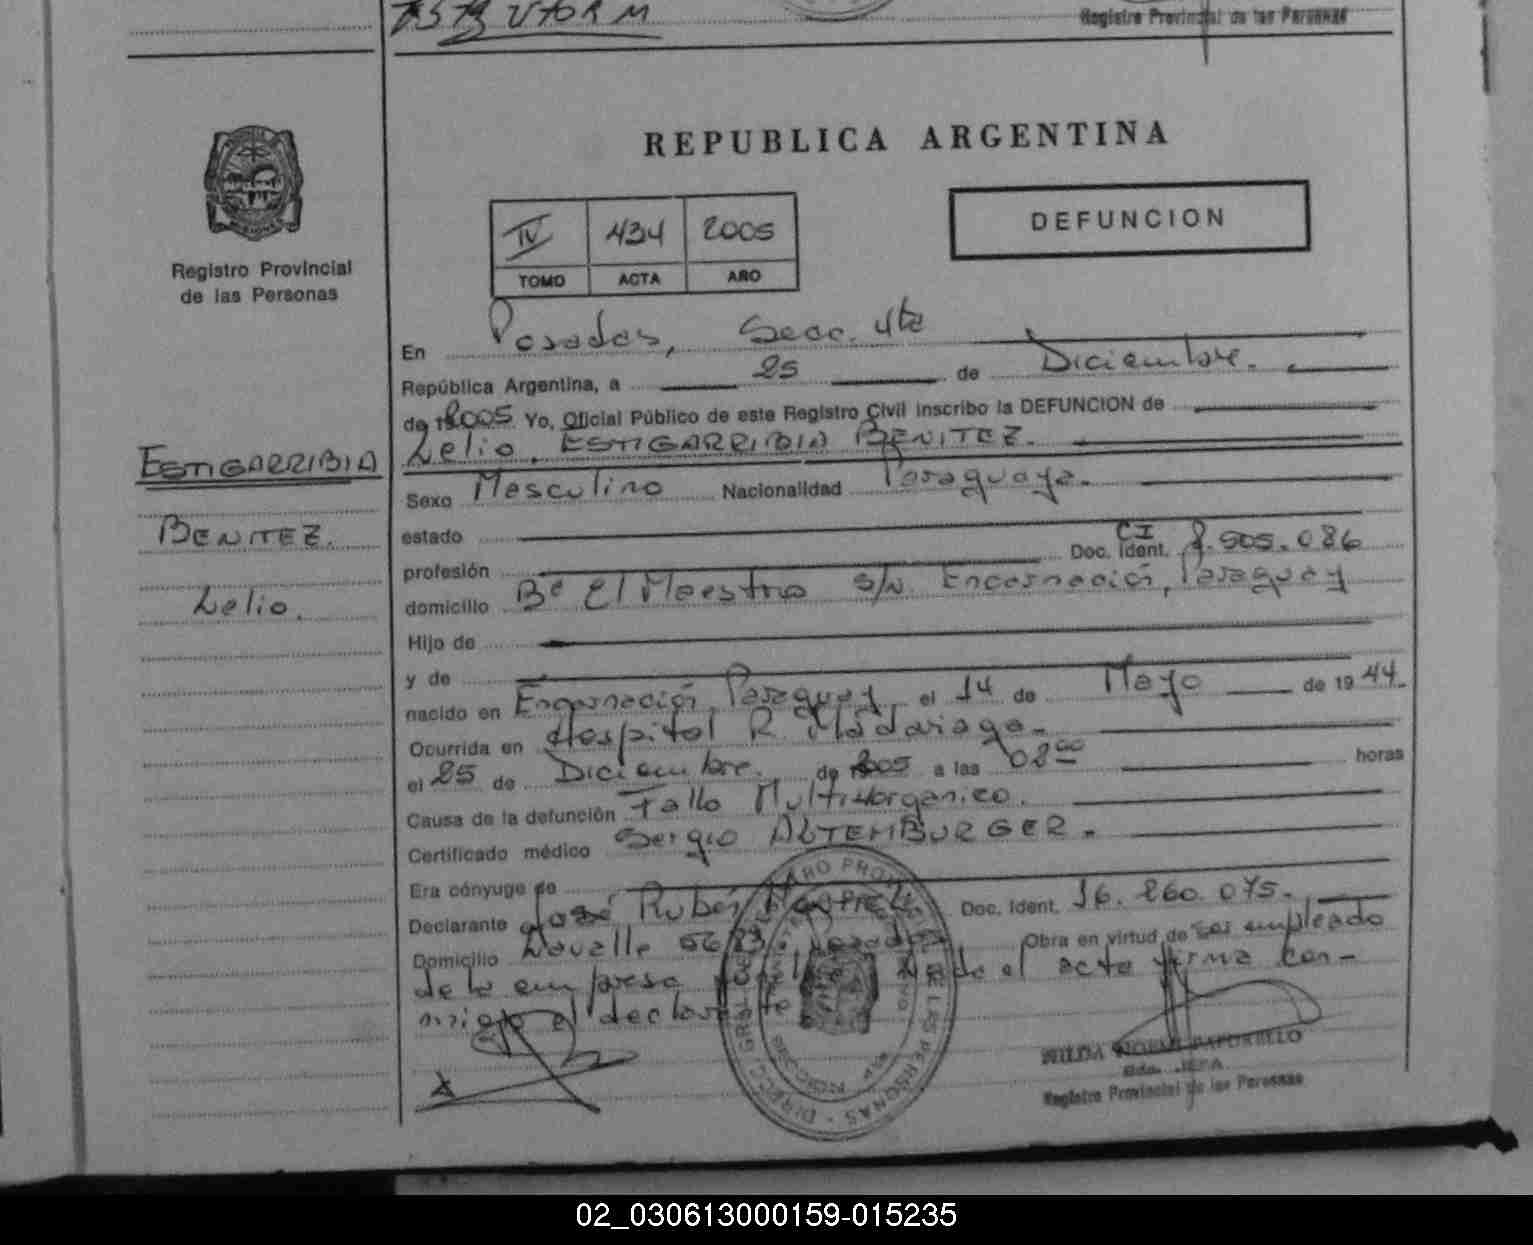 Registro Provincial de las Personas
Registro Provincial
de las Personas
REPUBLICA ARGENTINA
IV 434 2005
TOMO ACTA AÑO
DEFUNCION
En Posadas, Secc. 4ta
República Argentina, a 25 de Diciembre.
de 2005 Yo, Oficial Público de este Registro Civil inscribo la DEFUNCION de
Lelio, ESTIGARRIBIA BENITEZ.
ESTIGARRIBIA
BENITEZ.
Lelio.
Sexo Masculino Nacionalidad Paraguaya.
estado
profesión Doc. Ident. CI 505.086
domicilio Bº El Maestro s/n. Encarnación, Paraguay
Hijo de
y de
nacido en Encarnación, Paraguay el 14 de Mayo de 1944.
Ocurrida en Hospital R. Madariaga.
el 25 de Diciembre. de 2005 a las 02⁰⁰ horas
Causa de la defunción Fallo Multiorgánico.
Certificado médico Sergio ALTEMBURGER.
Era cónyuge de
Declarante José Rubén Doc. Ident. 16.260.075.
Domicilio Lavalle Obra en virtud de ser empleado
de la empresa el acta firma con-
migo el declarante
Registro Provincial de las Personas
02_030613000159-015235